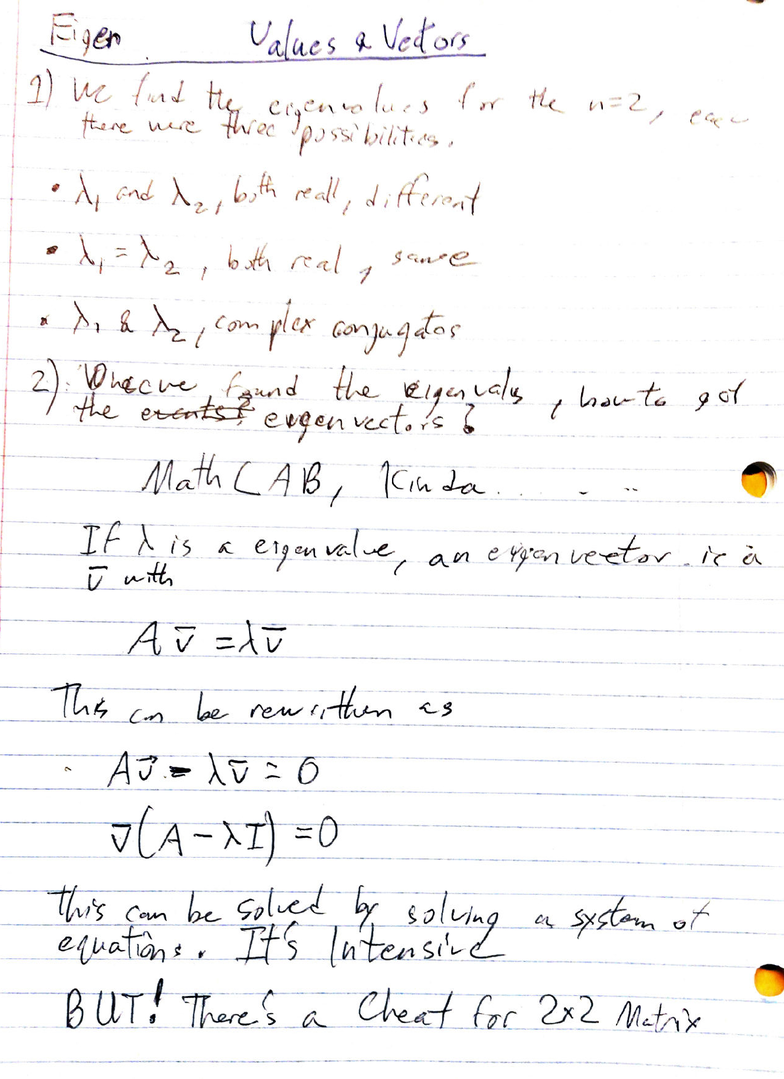 Eigen Values & Vectors
1) We find the eigenvalues for the n=2,
there were three possibilities.
• λ₁ and λ₂, both reall, different
• λ₁ = λ₂, both real, same
• λ₁ & λ₂, complex conjugates
2). Once we found the eigenvalus, how to get
the eigenvectors?
Math CAB, Kinda......
If λ is a eigenvalue, an eigenvector is a
v̅ with
A v̅ = λv̅
This can be rewritthen as
Av⃗ - λv̅ = 0
v̅(A - λI) = 0
this can be solved by solving a system of
equations. It's Intensive
BUT! There's a Cheat for 2x2 Matrix